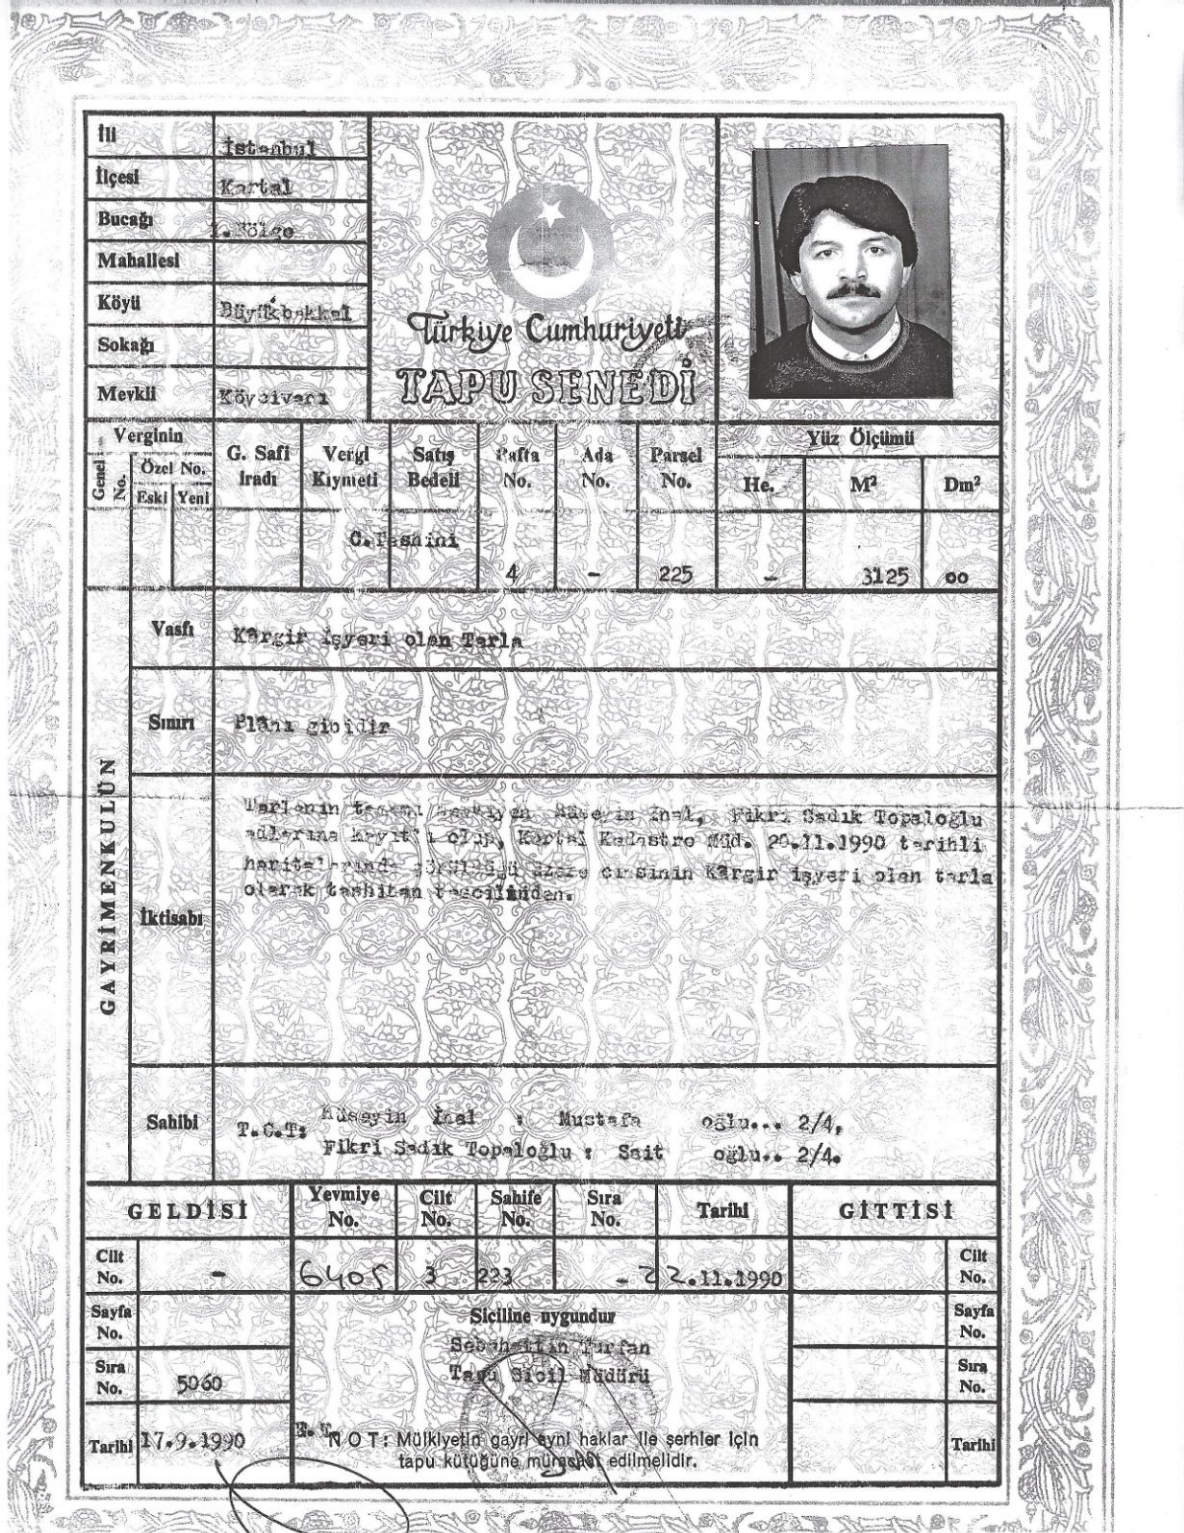 İli İstanbul
İlçesi Kartal
Bucağı 1. Bölge
Mahallesi
Köyü Büyükbakkal
Sokağı
Mevkii Köycivarı
Türkiye Cumhuriyeti
TAPU SENEDİ
Verginin
Genel No.
Özel No.
Eski Yeni
G. Safi İradı
Vergi Kıymeti
Satış Bedeli
Pafta No.
Ada No.
Parsel No.
Yüz Ölçümü
He. M² Dm²
C.Tashihi
4 - 225 - 3125 00
GAYRİMENKULÜN
Vasfı Kârgir İşyeri olan Tarla
Sınırı Plânı gibidir
İktisabı
Tarlanın tamamı Hüseyin İnal, Fikri Sadık Topaloğlu
adlarına kayıtlı olup, Kartal Kadastro Müd. 20.11.1990 tarihli
haritalarında görüldüğü üzere cinsinin Kârgir işyeri olan tarla
olarak tashihan tescilinden.
Sahibi
T.C.T: Hüseyin İnal : Mustafa oğlu... 2/4,
Fikri Sadık Topaloğlu : Sait oğlu.. 2/4.
GELDİSİ
Yevmiye No.
Cilt No.
Sahife No.
Sıra No.
Tarihi
GİTTİSİ
Cilt No. - 6405 3 223 - 22.11.1990 Cilt No.
Sayfa No. Siciline uygundur Sayfa No.
Sebahattin Turfan
Sıra No. 5060 Tapu Sicil Müdürü Sıra No.
Tarihi 17.9.1990 NOT: Mülkiyetin gayri ayni haklar ile şerhler için Tarihi
tapu kütüğüne müracaat edilmelidir.